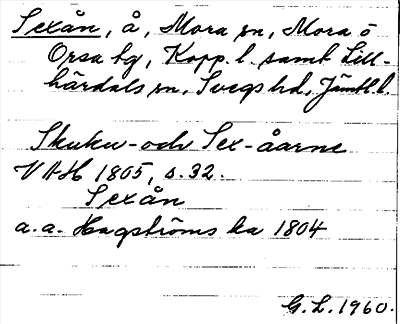 Sexån, å, Mora sn, Mora o
Orsa tg, Kopp. l. samt Lill-
härdals sn, Svegs hd, Jämtl. l.
Skuku- och Sex-åarne
VAH 1805, s. 32.
Sexån
a.a. Hagströms ka 1804
G.L. 1960.